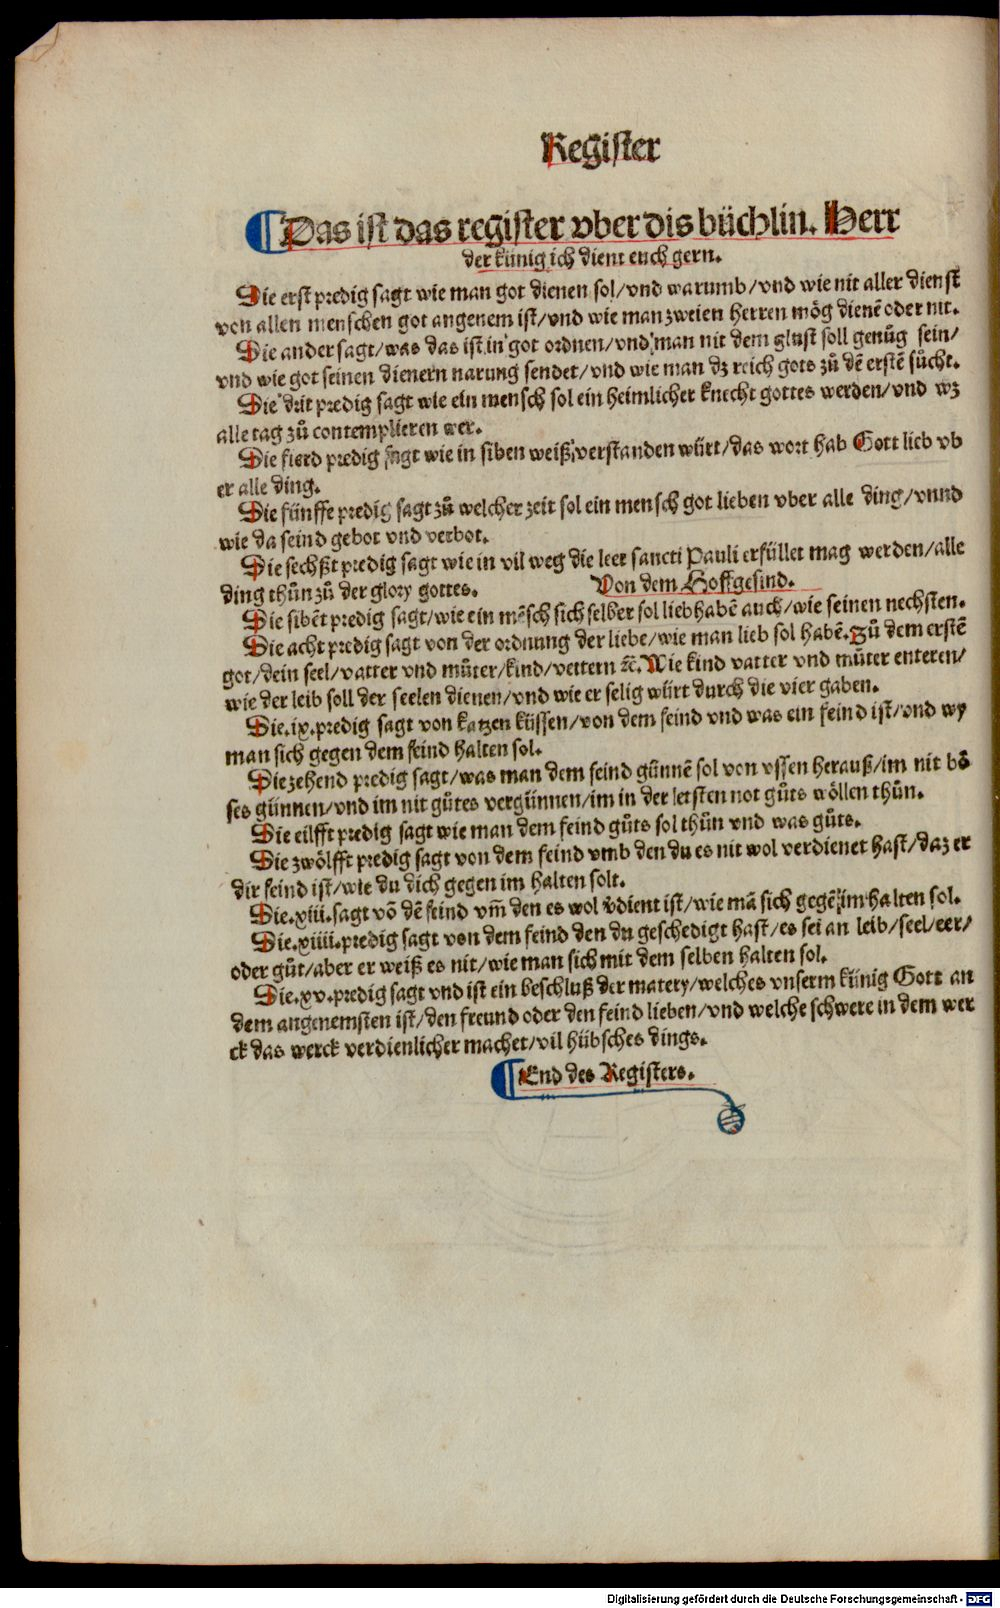 Register
¶ Das ist das register vber dis büchlin. Herr
der künig ich dient euch gern.
Die erst predig sagt wie man got dienen sol/vnd warumb/vnd wie nit aller dienst
von allen menschen got angenem ist/vnd wie man zweien herren mög dienē oder nit.
Die ander sagt/was das ist in got ordnen/vnd man nit dem glust soll genůg sein/
vnd wie got seinen dienern narung sendet/vnd wie man dz reich gots zů dē erstē sůcht.
Die drit predig sagt wie ein mensch sol ein heimlicher knecht gottes werden/vnd wz
alle tag zů contemplieren wer.
Die fierd predig sagt wie in siben weiß verstanden würt/das wort hab Gott lieb vb
er alle ding.
Die fünffe predig sagt zů welcher zeit sol ein mensch got lieben vber alle ding/vnnd
wie da seind gebot vnd verbot.
Die sechßt predig sagt wie in vil weg die leer sancti Pauli erfüllet mag werden/alle
ding thůn zů der glory gottes. Von dem Hoffgesind.
Die sibēt predig sagt/wie ein mēsch sich selber sol lieb habē auch/wie seinen nechsten.
Die acht predig sagt von der ordnung der liebe/wie man lieb sol habē. Zů dem erstē
got/dein seel/vatter vnd můter/kind/vettern ꝛc. Wie kind vatter vnd můter enteren/
wie der leib soll der seelen dienen/vnd wie er selig würt durch die vier gaben.
Die .ix. predig sagt von katzen küssen/von dem feind vnd was ein feind ist/vnd wy
man sich gegen dem feind halten sol.
Die zehend predig sagt/was man dem feind günnē sol von vssen herauß/im nit bö
ses günnen/vnd im nit gůtes vergünnen/im in der letsten not gůts wöllen thůn.
Die eilfft predig sagt wie man dem feind gůts sol thůn vnd was gůts.
Die zwölfft predig sagt von dem feind vmb den du es nit wol verdienet hast/daz er
dir feind ist/wie du dich gegen im halten solt.
Die .xiii. sagt vō dē feind vm̄ den es wol v̄dient ist/wie mā sich gegē im halten sol.
Die .xiiii. predig sagt von dem feind den du geschedigt hast/es sei an leib/seel/eer/
oder gůt/aber er weiß es nit/wie man sich mit dem selben halten sol.
Die .xv. predig sagt vnd ist ein beschluß der matery/welches vnserm künig Gott an
dem angenemsten ist/den freund oder den feind lieben/vnd welche schwere in dem wer
ck das werck verdienlicher machet/vil hübsches dings.
¶ End des Registers.
Digitalisierung gefördert durch die Deutsche Forschungsgemeinschaft - DFG